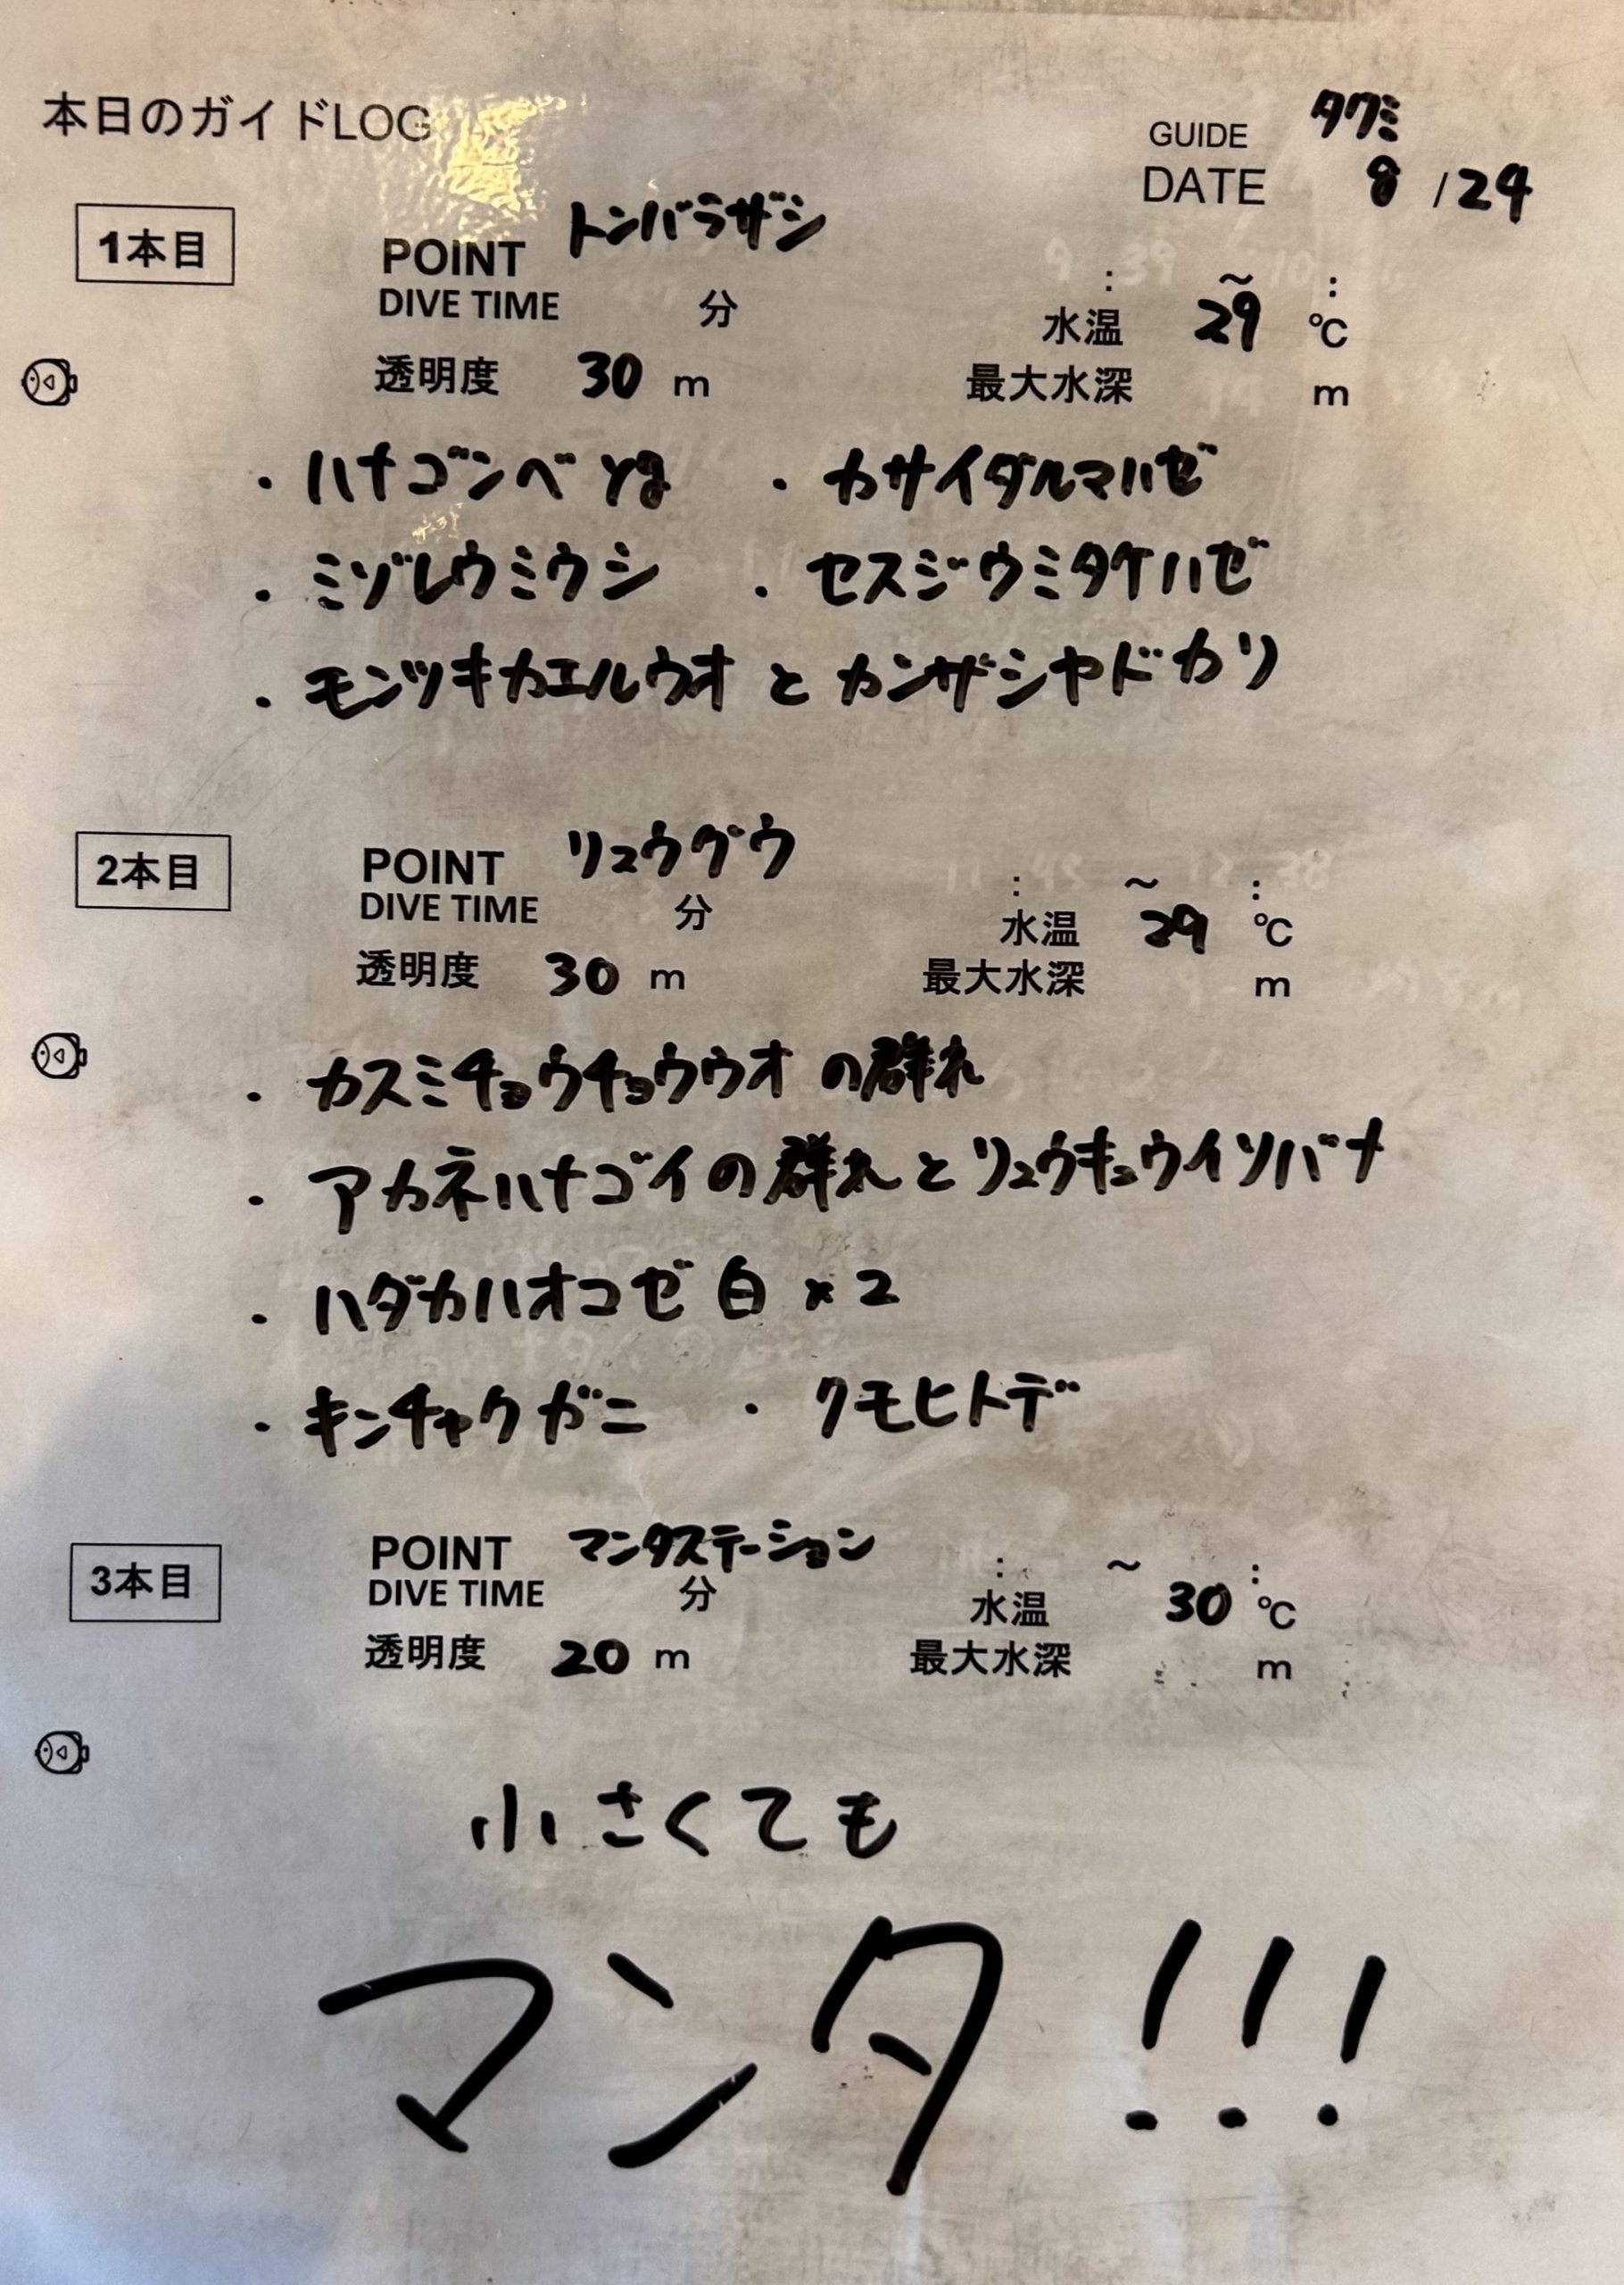 本日のガイドLOG
GUIDE タクミ
DATE 8/24
1本目
POINT トンバラザシ
: ~ :
DIVE TIME 分 水温 29 ℃
透明度 30 m 最大水深 m
・ハナゴンベ yg ・カサイダルマハゼ
・ミゾレウミウシ ・セスジウミタケハゼ
・モンツキカエルウオ と カンザシヤドカリ
2本目
POINT リュウグウ : ~ :
DIVE TIME 分 水温 29 ℃
透明度 30 m 最大水深 m
・カスミチョウチョウウオ の群れ
・アカネハナゴイの群れとリュウキュウイソバナ
・ハダカハオコゼ 白 ×2
・キンチャクガニ ・クモヒトデ
3本目
POINT マンタステーション : ~ :
DIVE TIME 分 水温 30 ℃
透明度 20 m 最大水深 m
小さくても
マンタ!!!